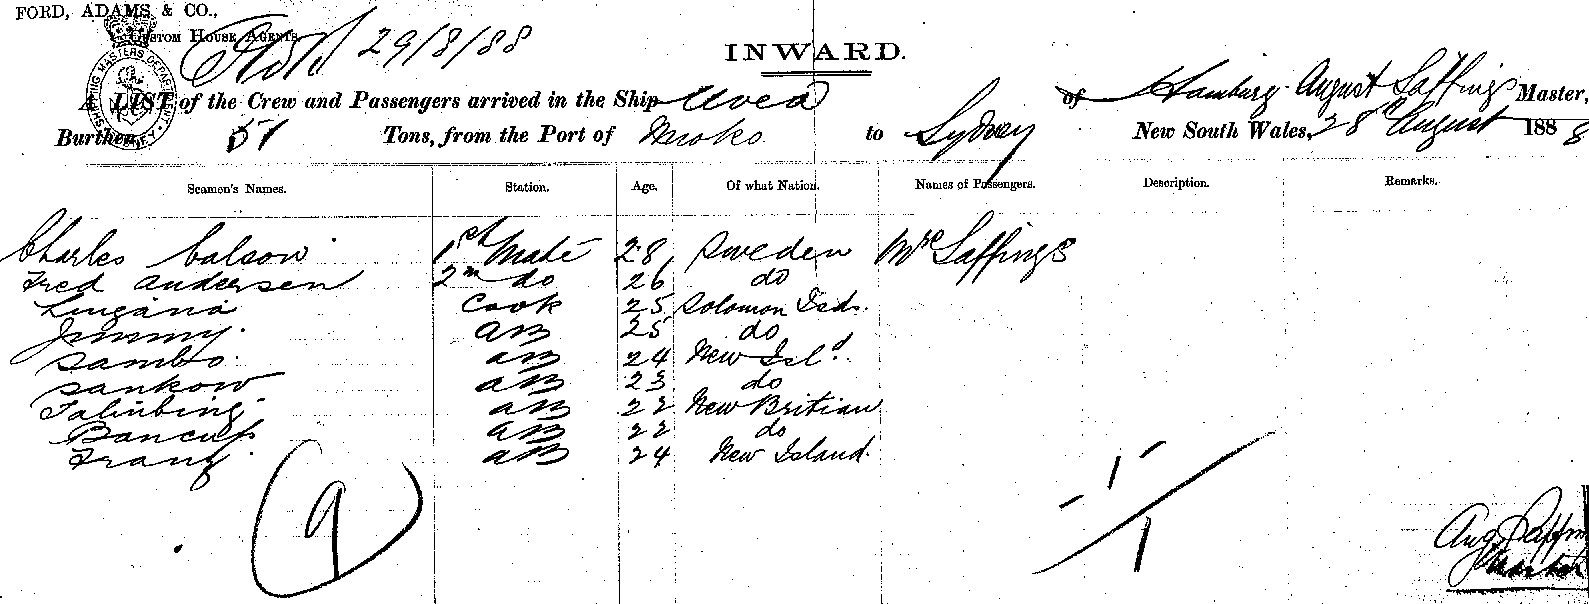 FORD, ADAMS & CO.,
CUSTOM HOUSE AGENTS
29/8/88
INWARD.
SHIPPING MASTERS DEPARTMENT SYDNEY
A LIST of the Crew and Passengers arrived in the Ship Uvea of Hamburg August Saffings Master,
Burthen 51 Tons, from the Port of Mioko to Sydney New South Wales, 28th August 1888
Seamen's Names. Station. Age. Of what Nation. Names of Passengers. Description. Remarks.
Charles Calson 1st Mate 28 Sweden Mrs Saffings
Fred Andersen 2nd do 26 do
Lingania Cook 25 Solomon Isds.
Jimmy. AB 25 do
Sambo. AB 24 New Isld.
Sankow AB 23 do
Talinbing AB 22 New Britian
Bancup AB 22 do
Franz AB 24 New Island.
9
1
1
Aug Saffings
Master